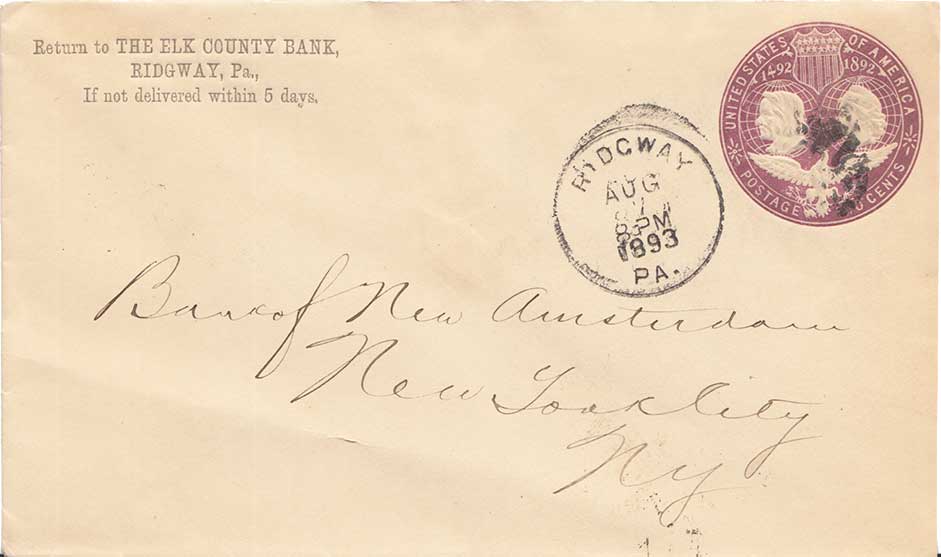 Return to THE ELK COUNTY BANK,
RIDGWAY, Pa.,
If not delivered within 5 days.
UNITED STATES OF AMERICA
1492 1892
POSTAGE CENTS
RIDGWAY
AUG
PM
1893
PA.
Bank of New Amsterdam
New York City
Ny